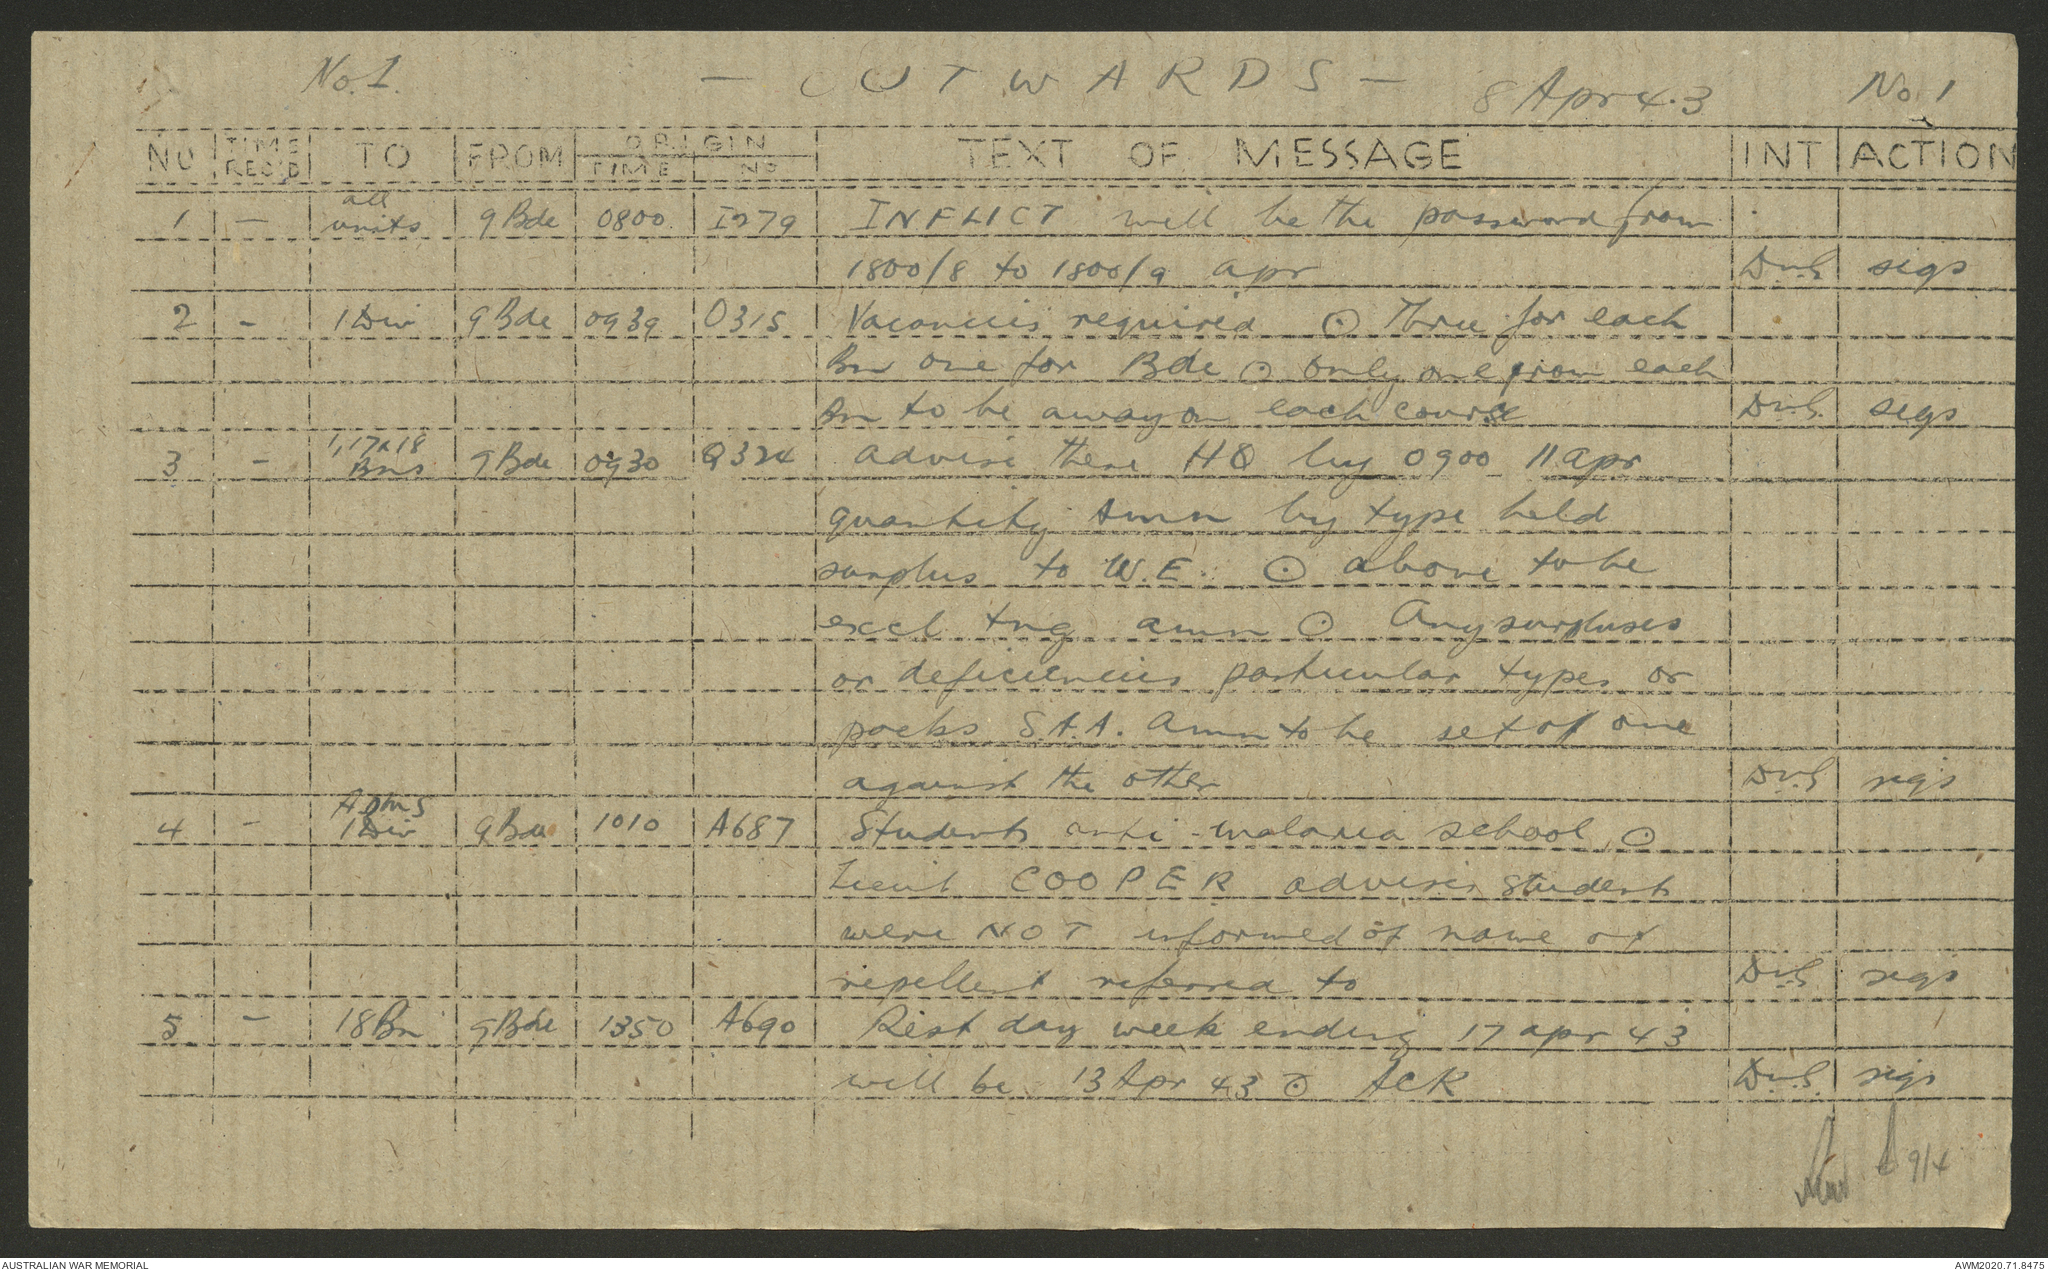 No. 1. — OUTWARDS — 8 Apr 43 No 1
NO TIME REC'D TO FROM ORIGIN TIME NO TEXT OF MESSAGE INT ACTION
1 — all units 9 Bde 0800 I279 INFLICT will be the password from
1800/8 to 1800/9 apr DvS sigs
2 - 1 Div 9 Bde 0939 O315 Vacancies required ⊙ Three for each
Bn one for Bde ⊙ only one from each
Bn to be away on each course DvS. sigs
3 - 1, 17 & 18 Bns 9 Bde 0930 Q324 advise these HQ by 0900 11 apr
quantity Amn by type held
surplus to W.E. ⊙ above to be
excl tng amn ⊙ Any surpluses
or deficiencies particular types or
packs S.A.A. Amn to be set off one
against the other DvS sigs
4 - ADMS 1 Div 9 Bde 1010 A687 Students anti-malaria school ⊙
Lieut COOPER advises students
were NOT informed of name of
repellent referred to DvS sigs
5 - 18 Bn 9 Bde 1350 A690 Rest day week ending 17 apr 43
will be 13 Apr 43 ⊙ ACK DvS. sigs
9/4
AUSTRALIAN WAR MEMORIAL AWM2020.71.8475